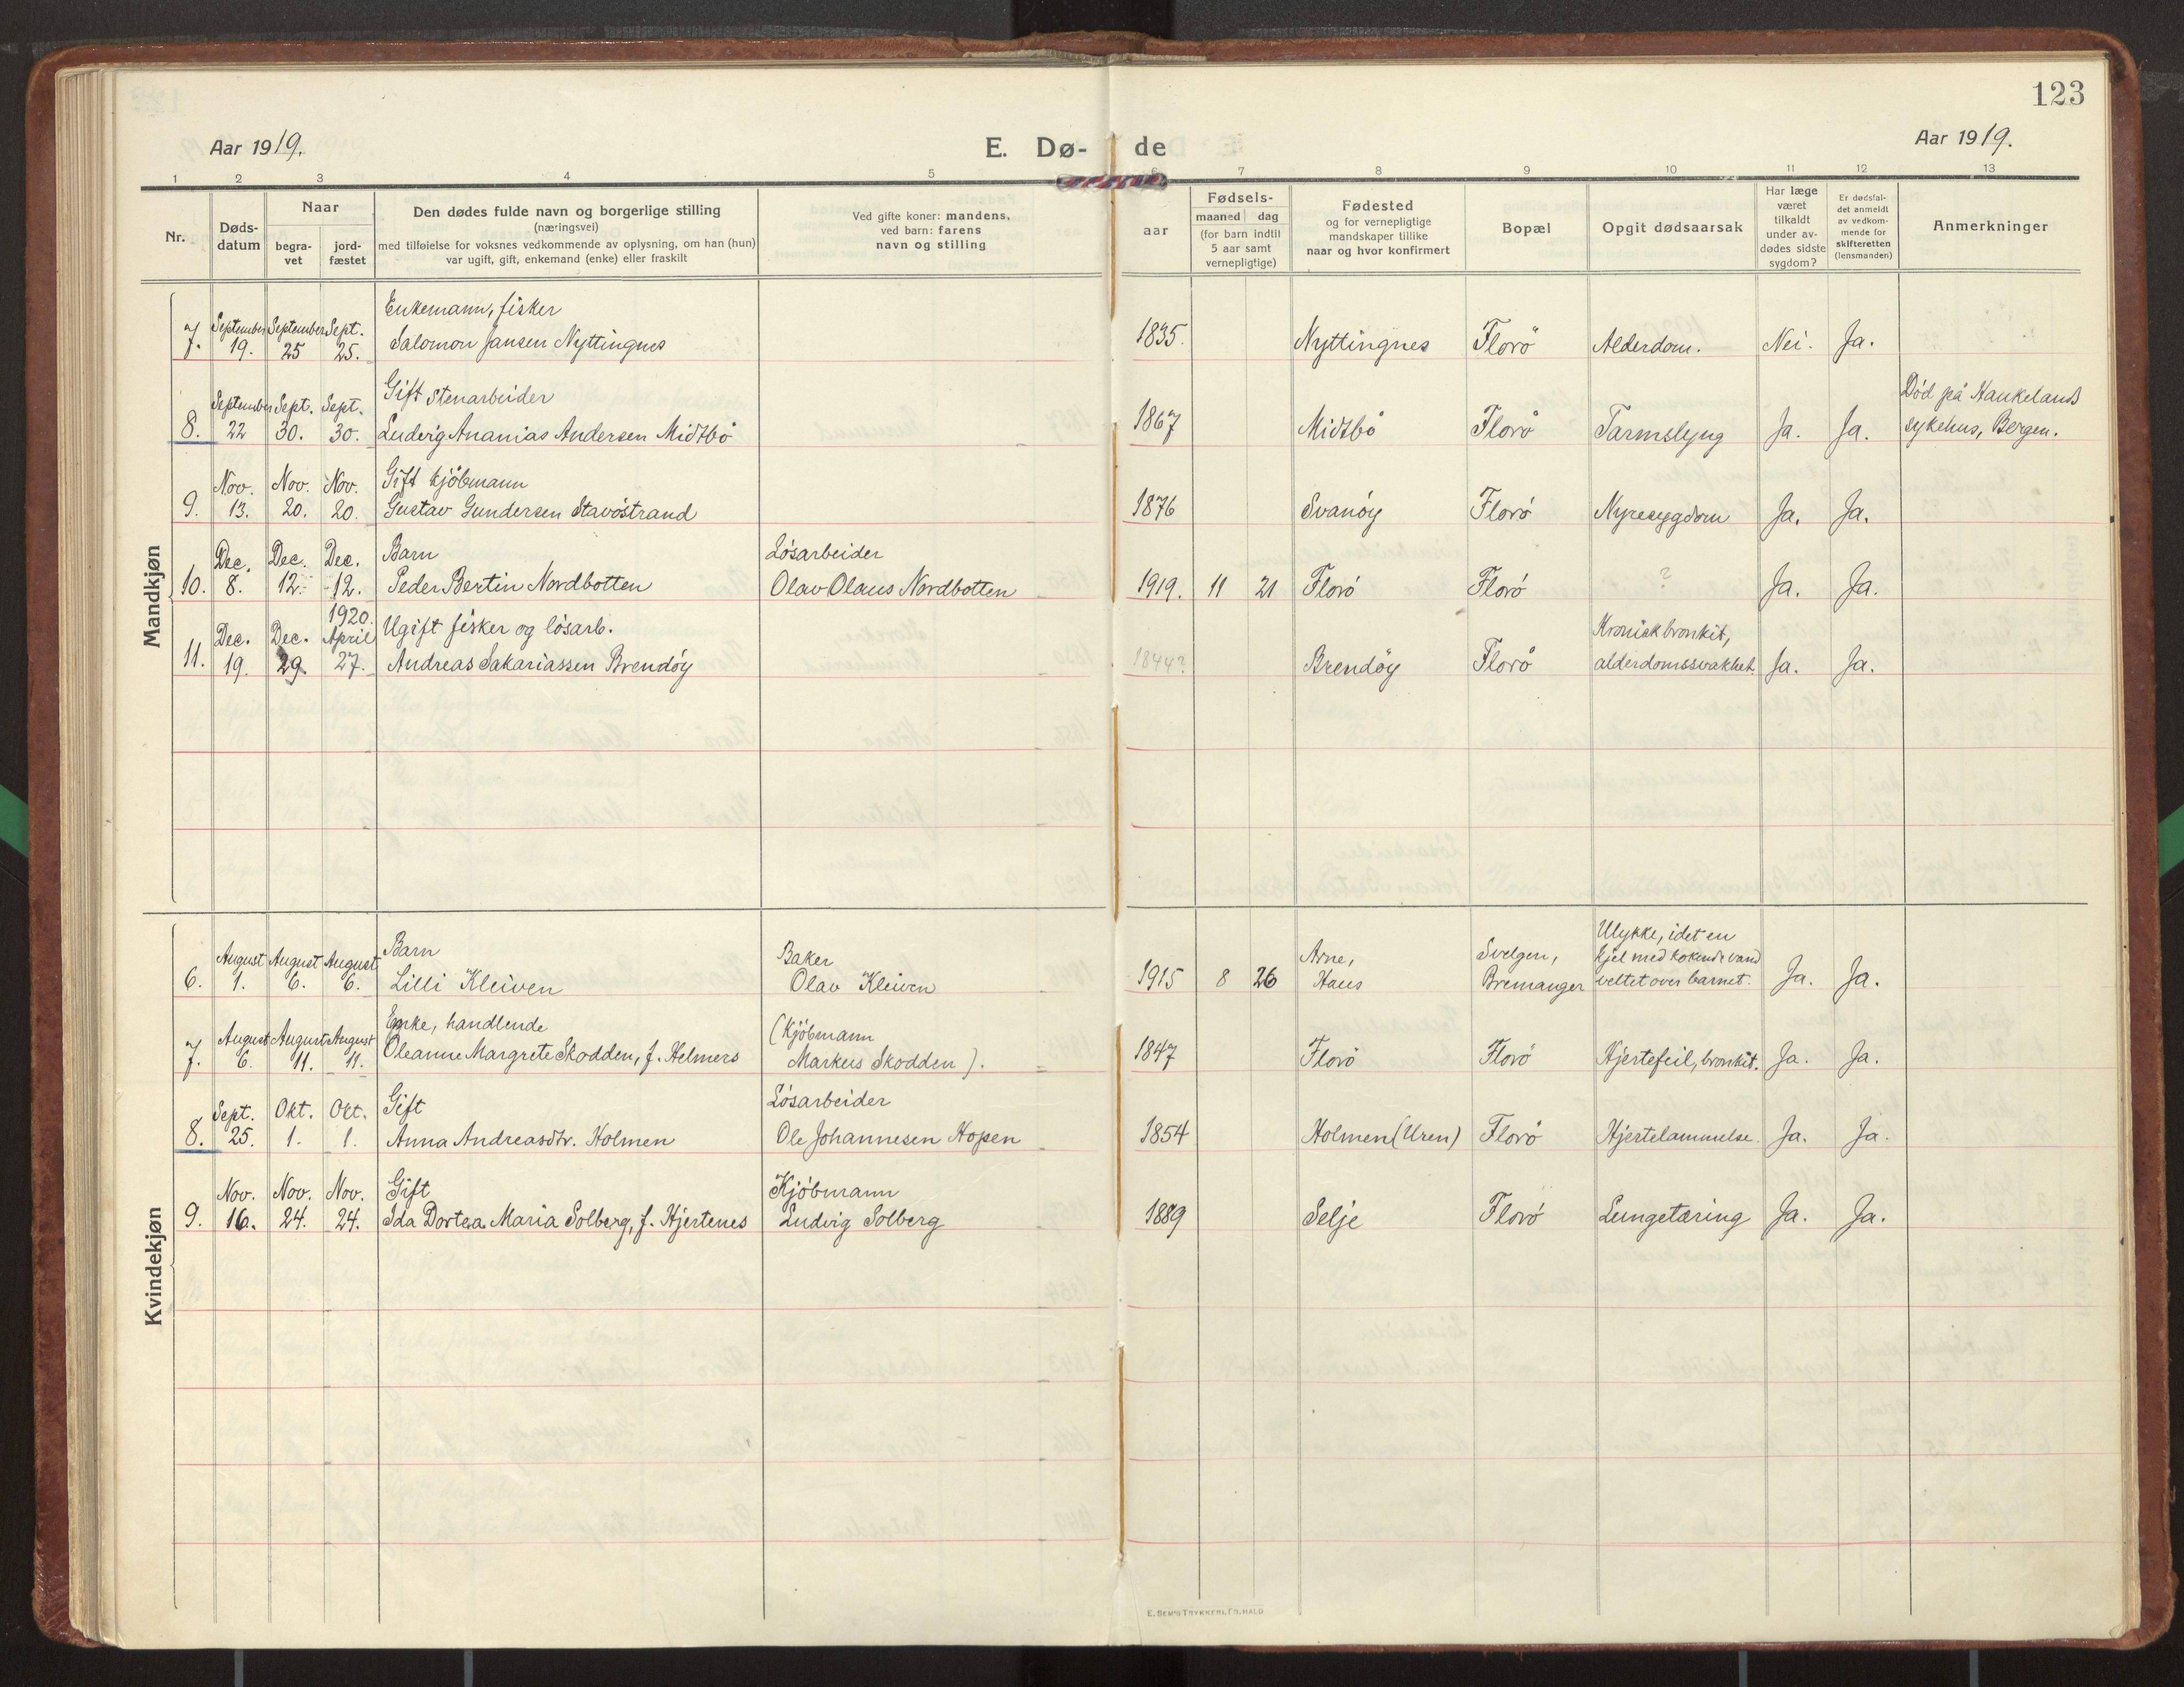 123
Aar 1919.
E. Dø- de
Aar 1919.
1 2 3 4 5 6 7 8 9 10 11 12 13
Nr.
Døds-
datum
Naar
begra-
vet
jord-
fæstet
Den dødes fulde navn og borgerlige stilling
(næringsvei)
med tilføielse for voksnes vedkommende av oplysning, om han (hun)
var ugift, gift, enkemand (enke) eller fraskilt
Ved gifte koner: mandens,
ved barn: farens
navn og stilling
aar
Fødsels-
maaned dag
(for barn indtil
5 aar samt
vernepligtige)
Fødested
og for vernepligtige
mandskaper tillike
naar og hvor konfirmert
Bopæl
Opgit dødsaarsak
Har læge
været
tilkaldt
under av-
dødes sidste
sygdom?
Er dødsfal-
det anmeldt
av vedkom-
mende for
skifteretten
(lensmanden)
Anmerkninger
Mandkjøn
Enkemann, fisker
September September Sept.
7. 19. 25 25. Salomon Jansen Nyttingnes 1835. Nyttingnes Florö Alderdom. Nei. Ja.
Gift stenarbeider Död på Haukelands
September Sept. Sept.
8. 22 30. 30. Ludvig Ananias Andersen Midtbö 1867 Midtbö Florö Tarmslyng Ja. Ja. sykehus, Bergen.
Nov. Nov. Nov. Gift kjöbmann
9. 13. 20. 20. Gustav Gundersen Stavöstrand 1876 Svanöy Florö Nyresygdom Ja. Ja.
Dec. Dec. Dec. Barn Lösarbeider
10. 8. 12. 12. Peder Bertin Nordbotten Olav Olaus Nordbotten 1919. 11 21 Florö Florö ? Ja. Ja.
1920.
Dec. Dec. April Ugift fisker og lösarb. Kronisk bronkit,
11. 19. 29. 27. Andreas Sakariassen Brendöy 1844? Brendöy Florö alderdomssvakhet. Ja. Ja.
Kvindekjøn
Ulykke, idet en
August August August Barn Baker Arne, Svelgen, kjel med kokende vand
6. 1. 6. 6. Lilli Kleiven Olav Kleiven 1915 8 26 Haus Bremanger veltet over barnet. Ja. Ja.
August August August Enke, handlende (Kjöbmann
7. 6. 11. 11. Oleanne Margrete Skodden, f. Helmers Markus Skodden). 1847 Florö Florö Hjertefeil, bronkit. Ja. Ja.
Sept. Okt. Okt. Gift Lösarbeider
8. 25. 1. 1. Anna Andreasdtr. Holmen Ole Johannesen Hopen 1854 Holmen (Uren) Florö Hjertelammelse. Ja. Ja.
Nov. Nov. Nov. Gift Kjöbmann
9. 16. 24. 24. Ida Dortea Maria Solberg, f. Hjertenes Ludvig Solberg 1889 Selje Florö Lungetæring Ja. Ja.
E. SEM'S TRYKKERI, FR.HALD